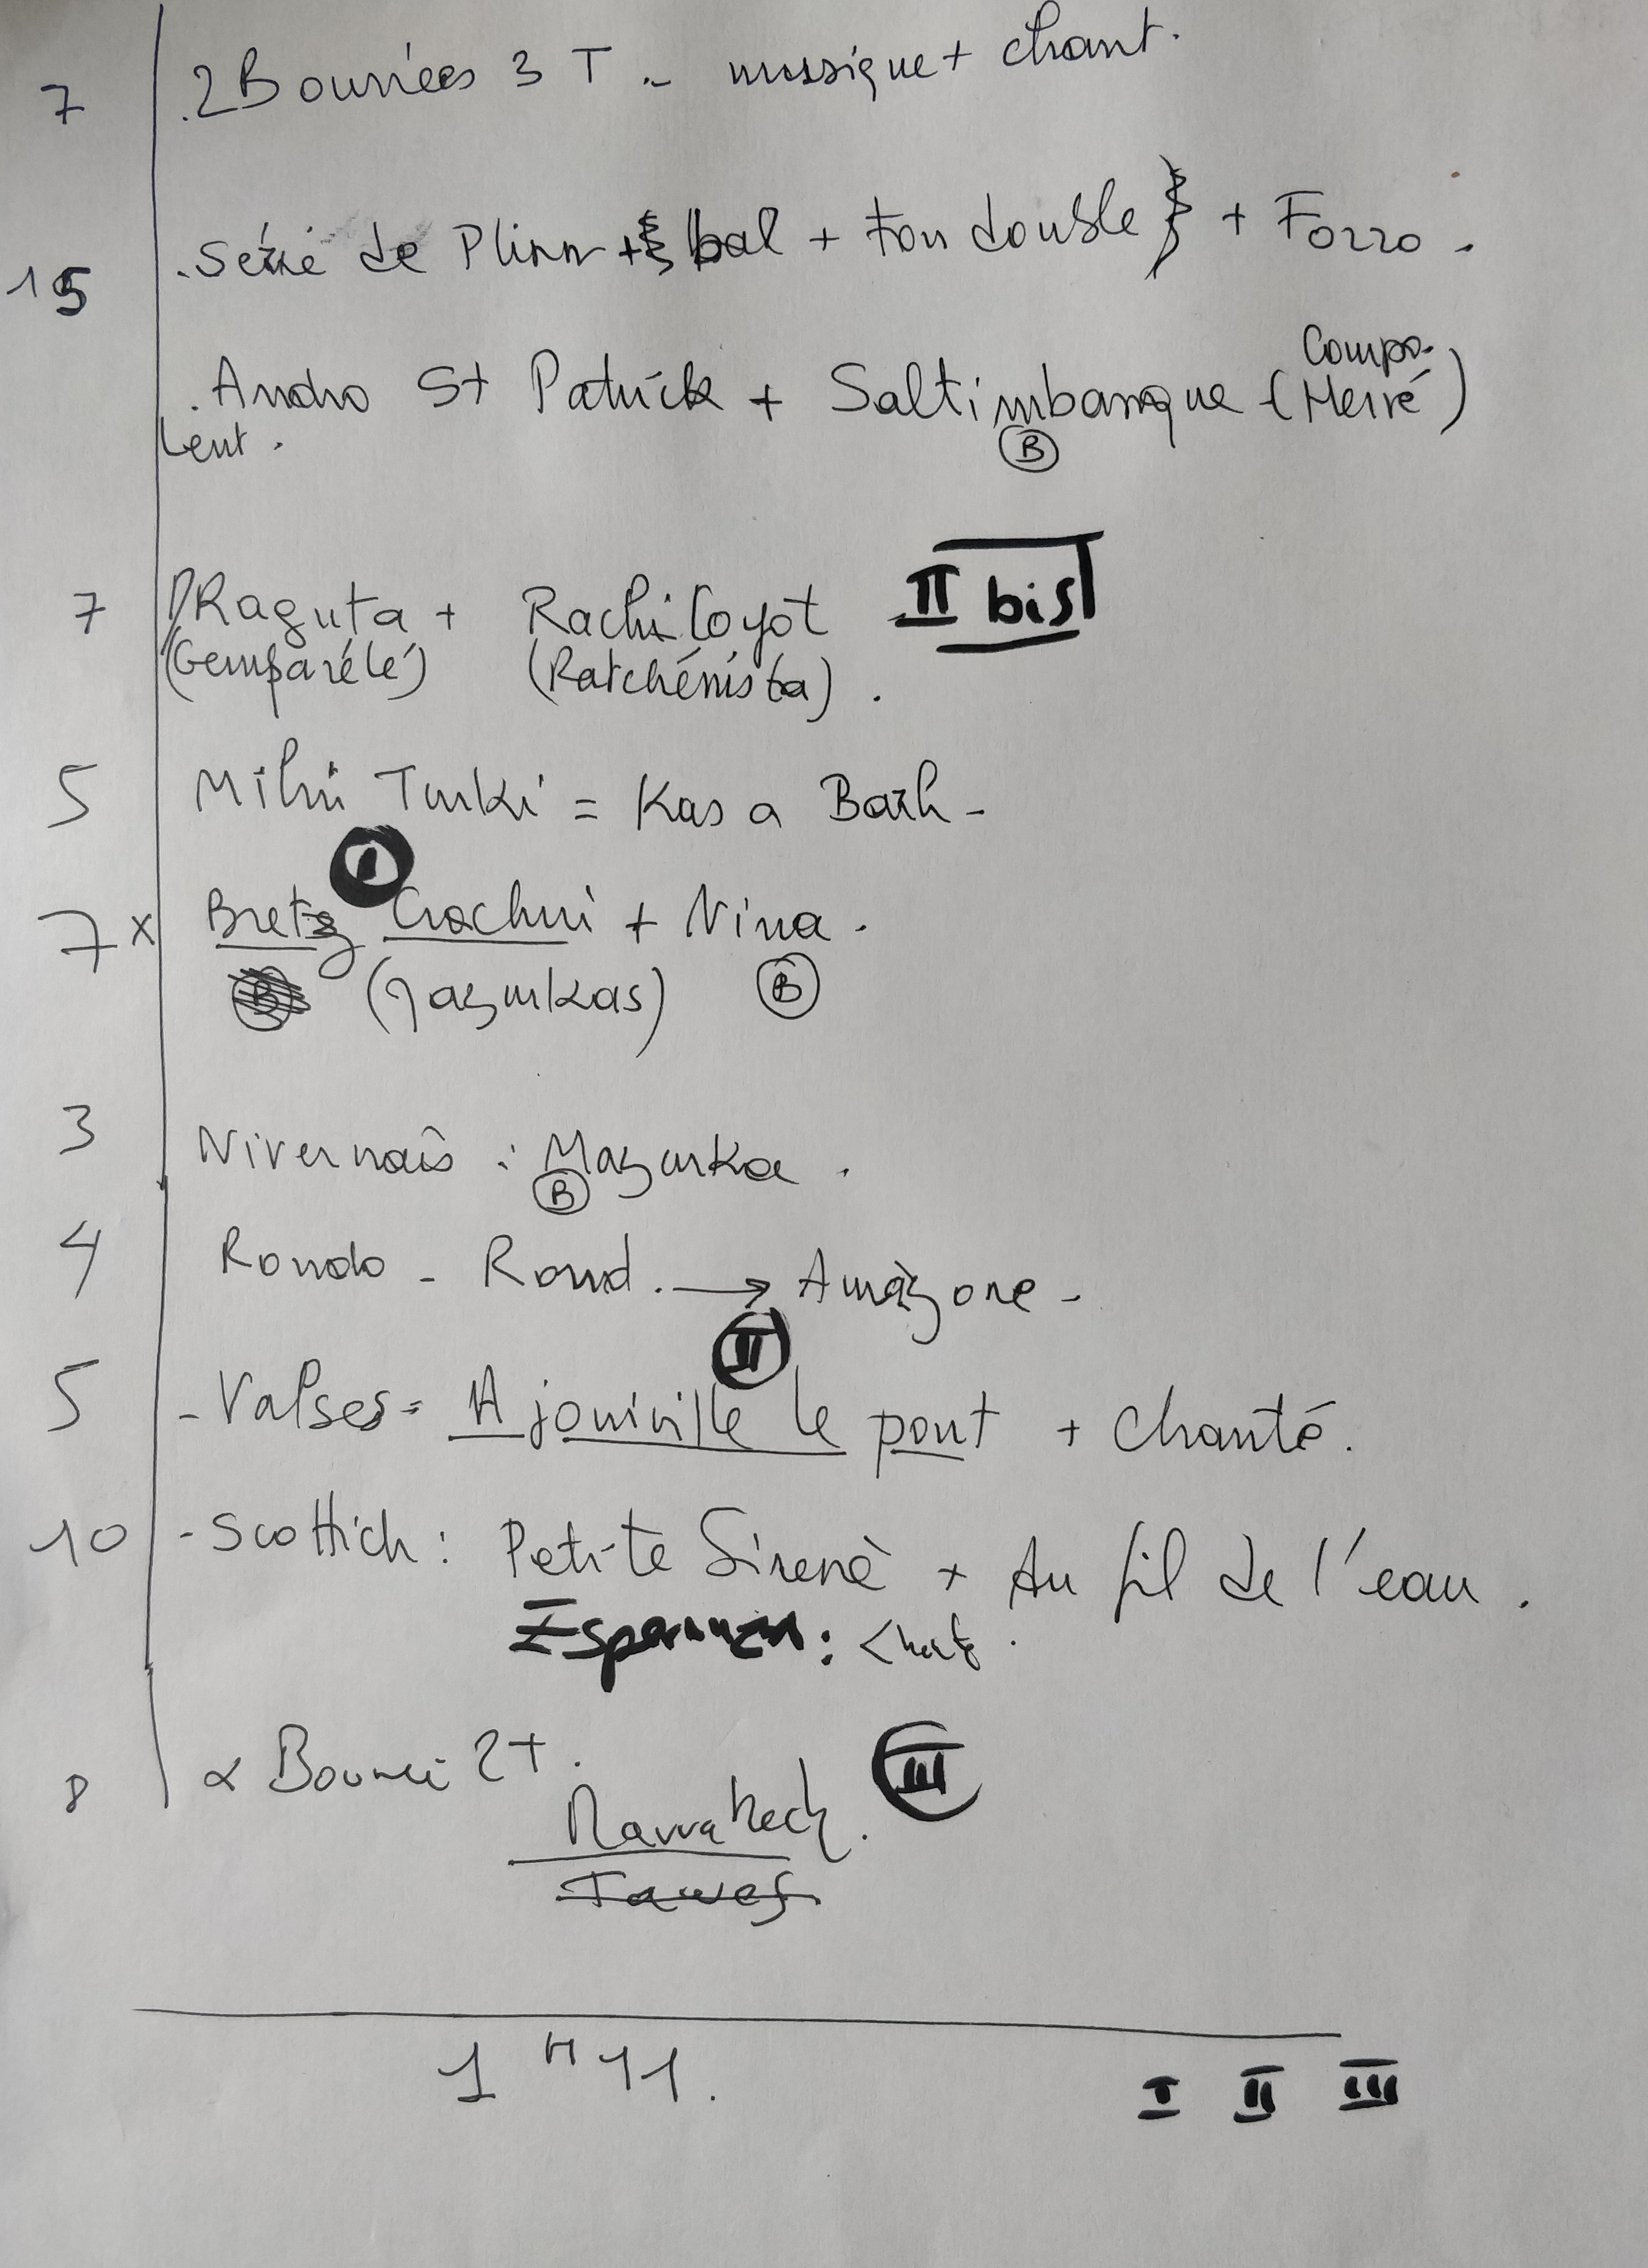 7 .2 Bourrées 3 T .- musique + chant.
15 .série de Plinn + { bal + Fon double } + Forro .
Compo.
.Andro St Patrick + Saltimbanque (Hervé)
Lent . B
7 Raguta + Rachi Coyot II bis
(Gemparélé) (Ratchénista) .
5 Mihri Turki = Kas a Barh -
I
7 x Bretz Crochui + Nina .
B (Mazurkas) B
3 Nivernais : Mazurka .
B
4 Rondo - Rond. → Amazone -
II
5 - Valses = A joinville le pont + Chanté.
10 - Scottich : Petite Sirène + Au fil de l'eau .
8 Bourrée 2T. III
Marrakech.
1 H 11. I II III